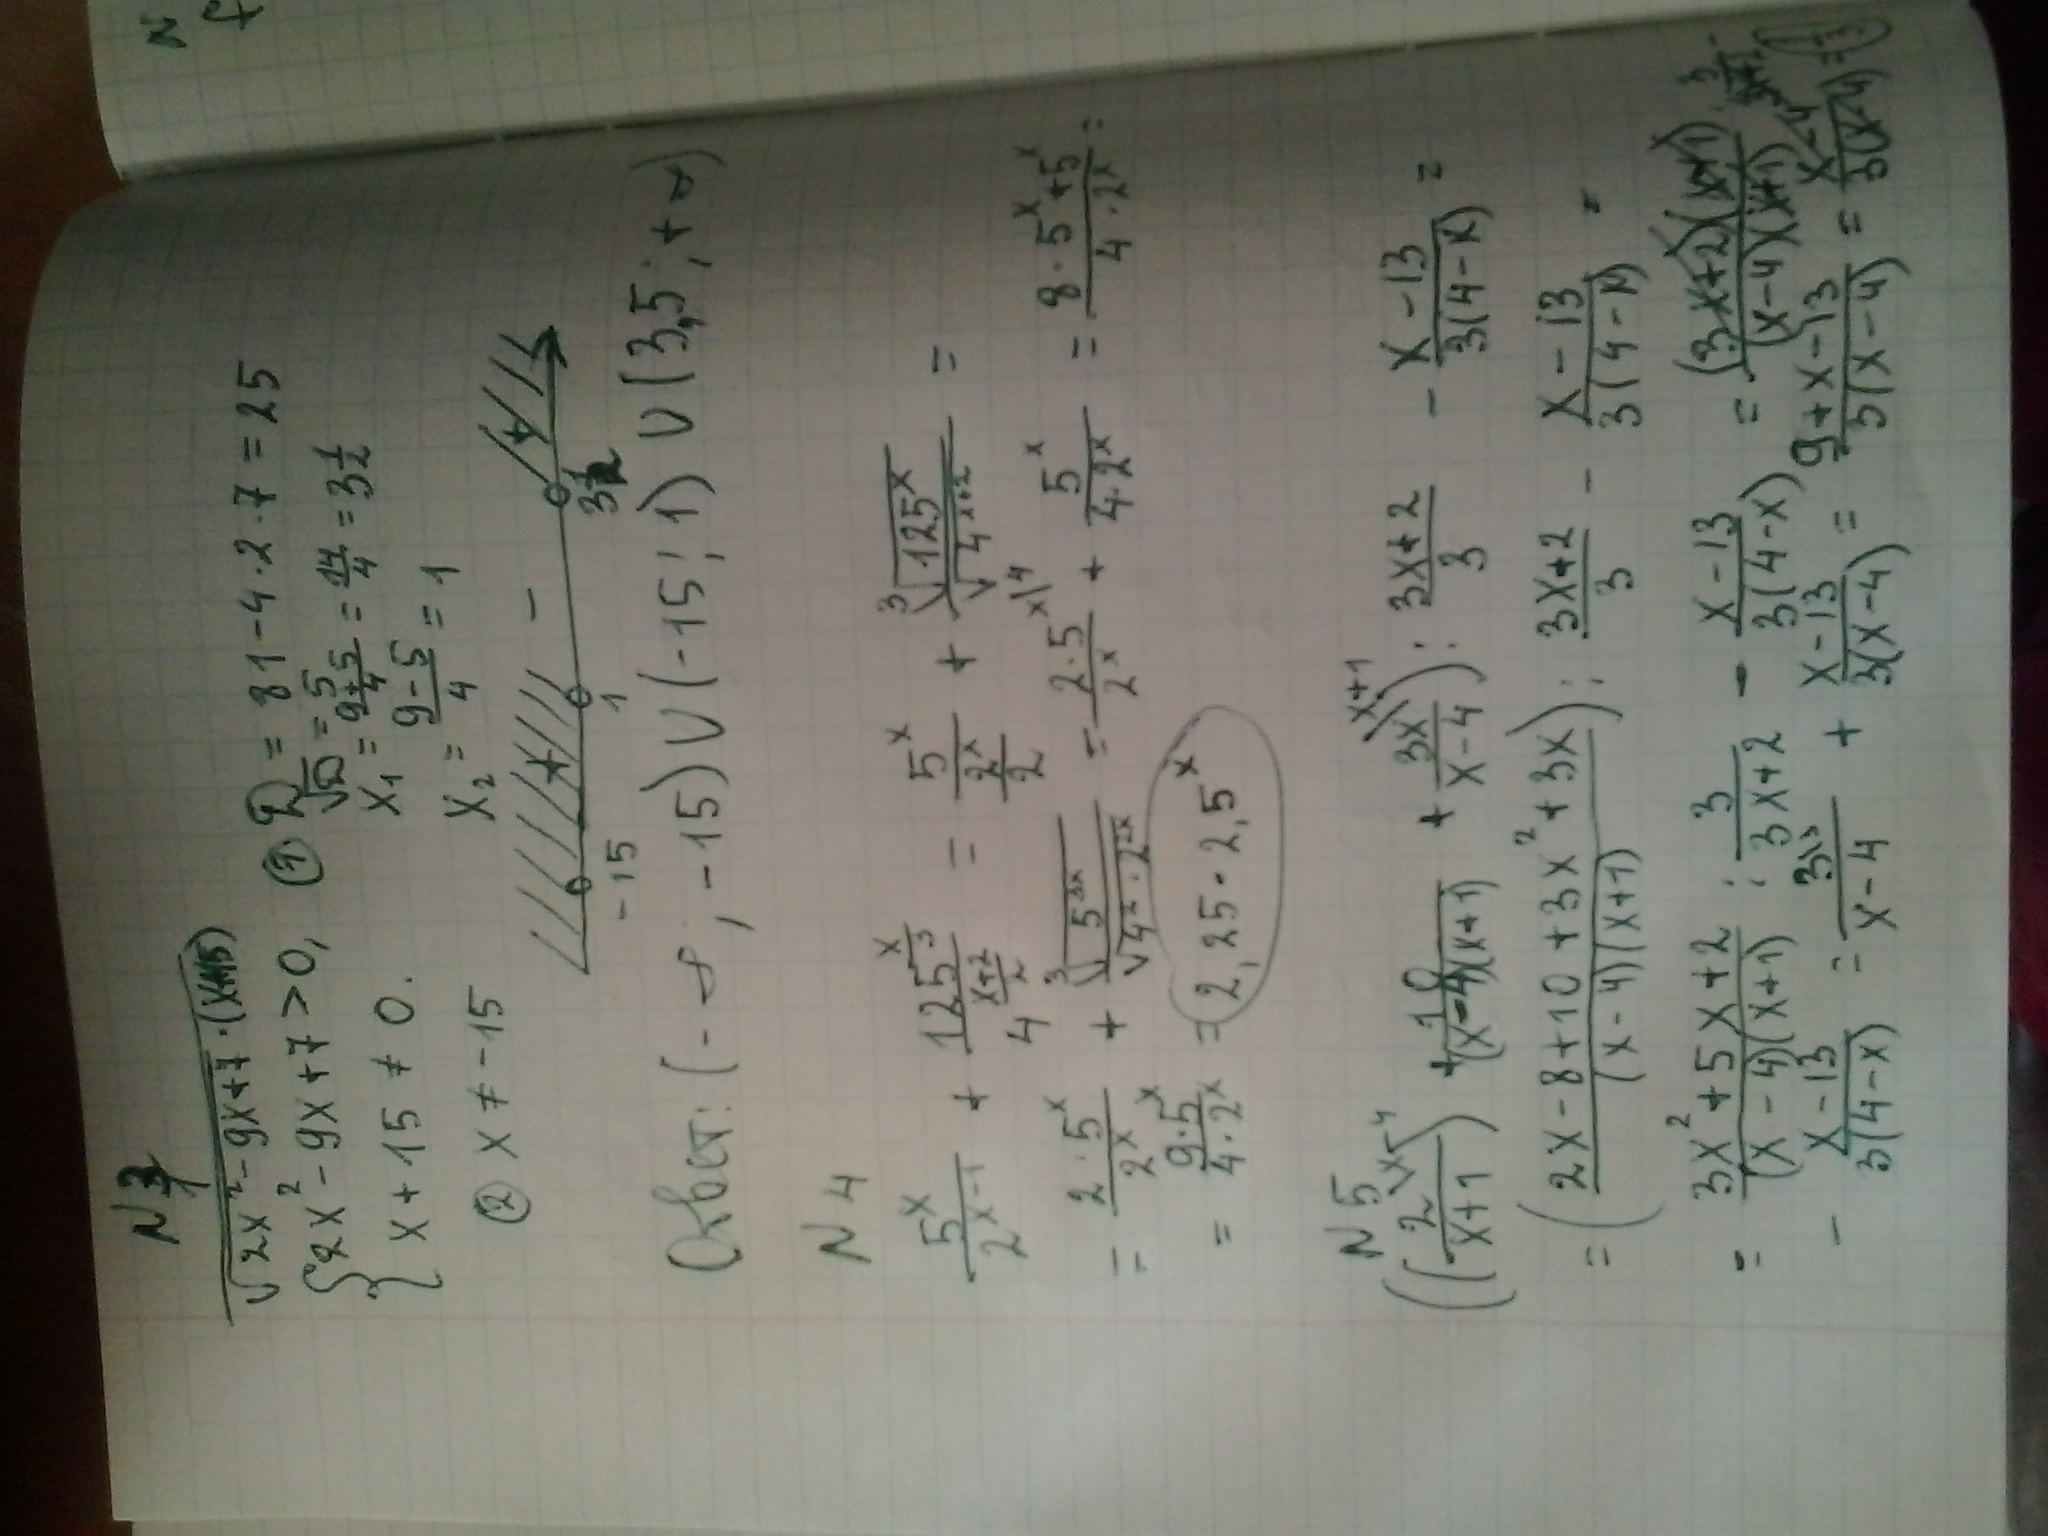 N 3
√(2x² - 9x + 7) · (x+15)
{ 2x² - 9x + 7 > 0, ① D = 81 - 4·2·7 = 25
x + 15 ≠ 0. √D = 5
x₁ = (9+5)/4 = 14/4 = 3 1/2
② x ≠ -15 x₂ = (9-5)/4 = 1
+ - +
-15 1 3 1/2
Ответ: (-∞; -15) ∪ (-15; 1) ∪ (3,5; +∞)
N 4
5^x/2^(x-1) + 125^(x/3)/4^((x+2)/2) = 5^x/(2^x/2) + ³√(125^x)/√(4^(x+2)) =
= 2·5^x/2^x + ³√(5^(3x))/√(4²·2^(2x)) = 2·5^x/2^x + 5^x/(4·2^x) = (8·5^x + 5^x)/(4·2^x) =
= 9·5^x/(4·2^x) = 2,25 · 2,5^x
N 5
((2/(x+1)) + 10/((x-4)(x+1)) + 3x/(x-4)) : (3x+2)/3 - (x-13)/(3(4-x)) =
= ((2x - 8 + 10 + 3x² + 3x)/((x-4)(x+1))) : (3x+2)/3 - (x-13)/(3(4-x)) =
= (3x² + 5x + 2)/((x-4)(x+1)) : 3/(3x+2) - (x-13)/(3(4-x)) = (3x+2)(x+1)/((x-4)(x+1)) ·
- (x-13)/(3(4-x)) = 3/(x-4) + (x-13)/(3(x-4)) = (9+x-13)/(3(x-4)) = (x-4)/(3(x-4)) = 1/3